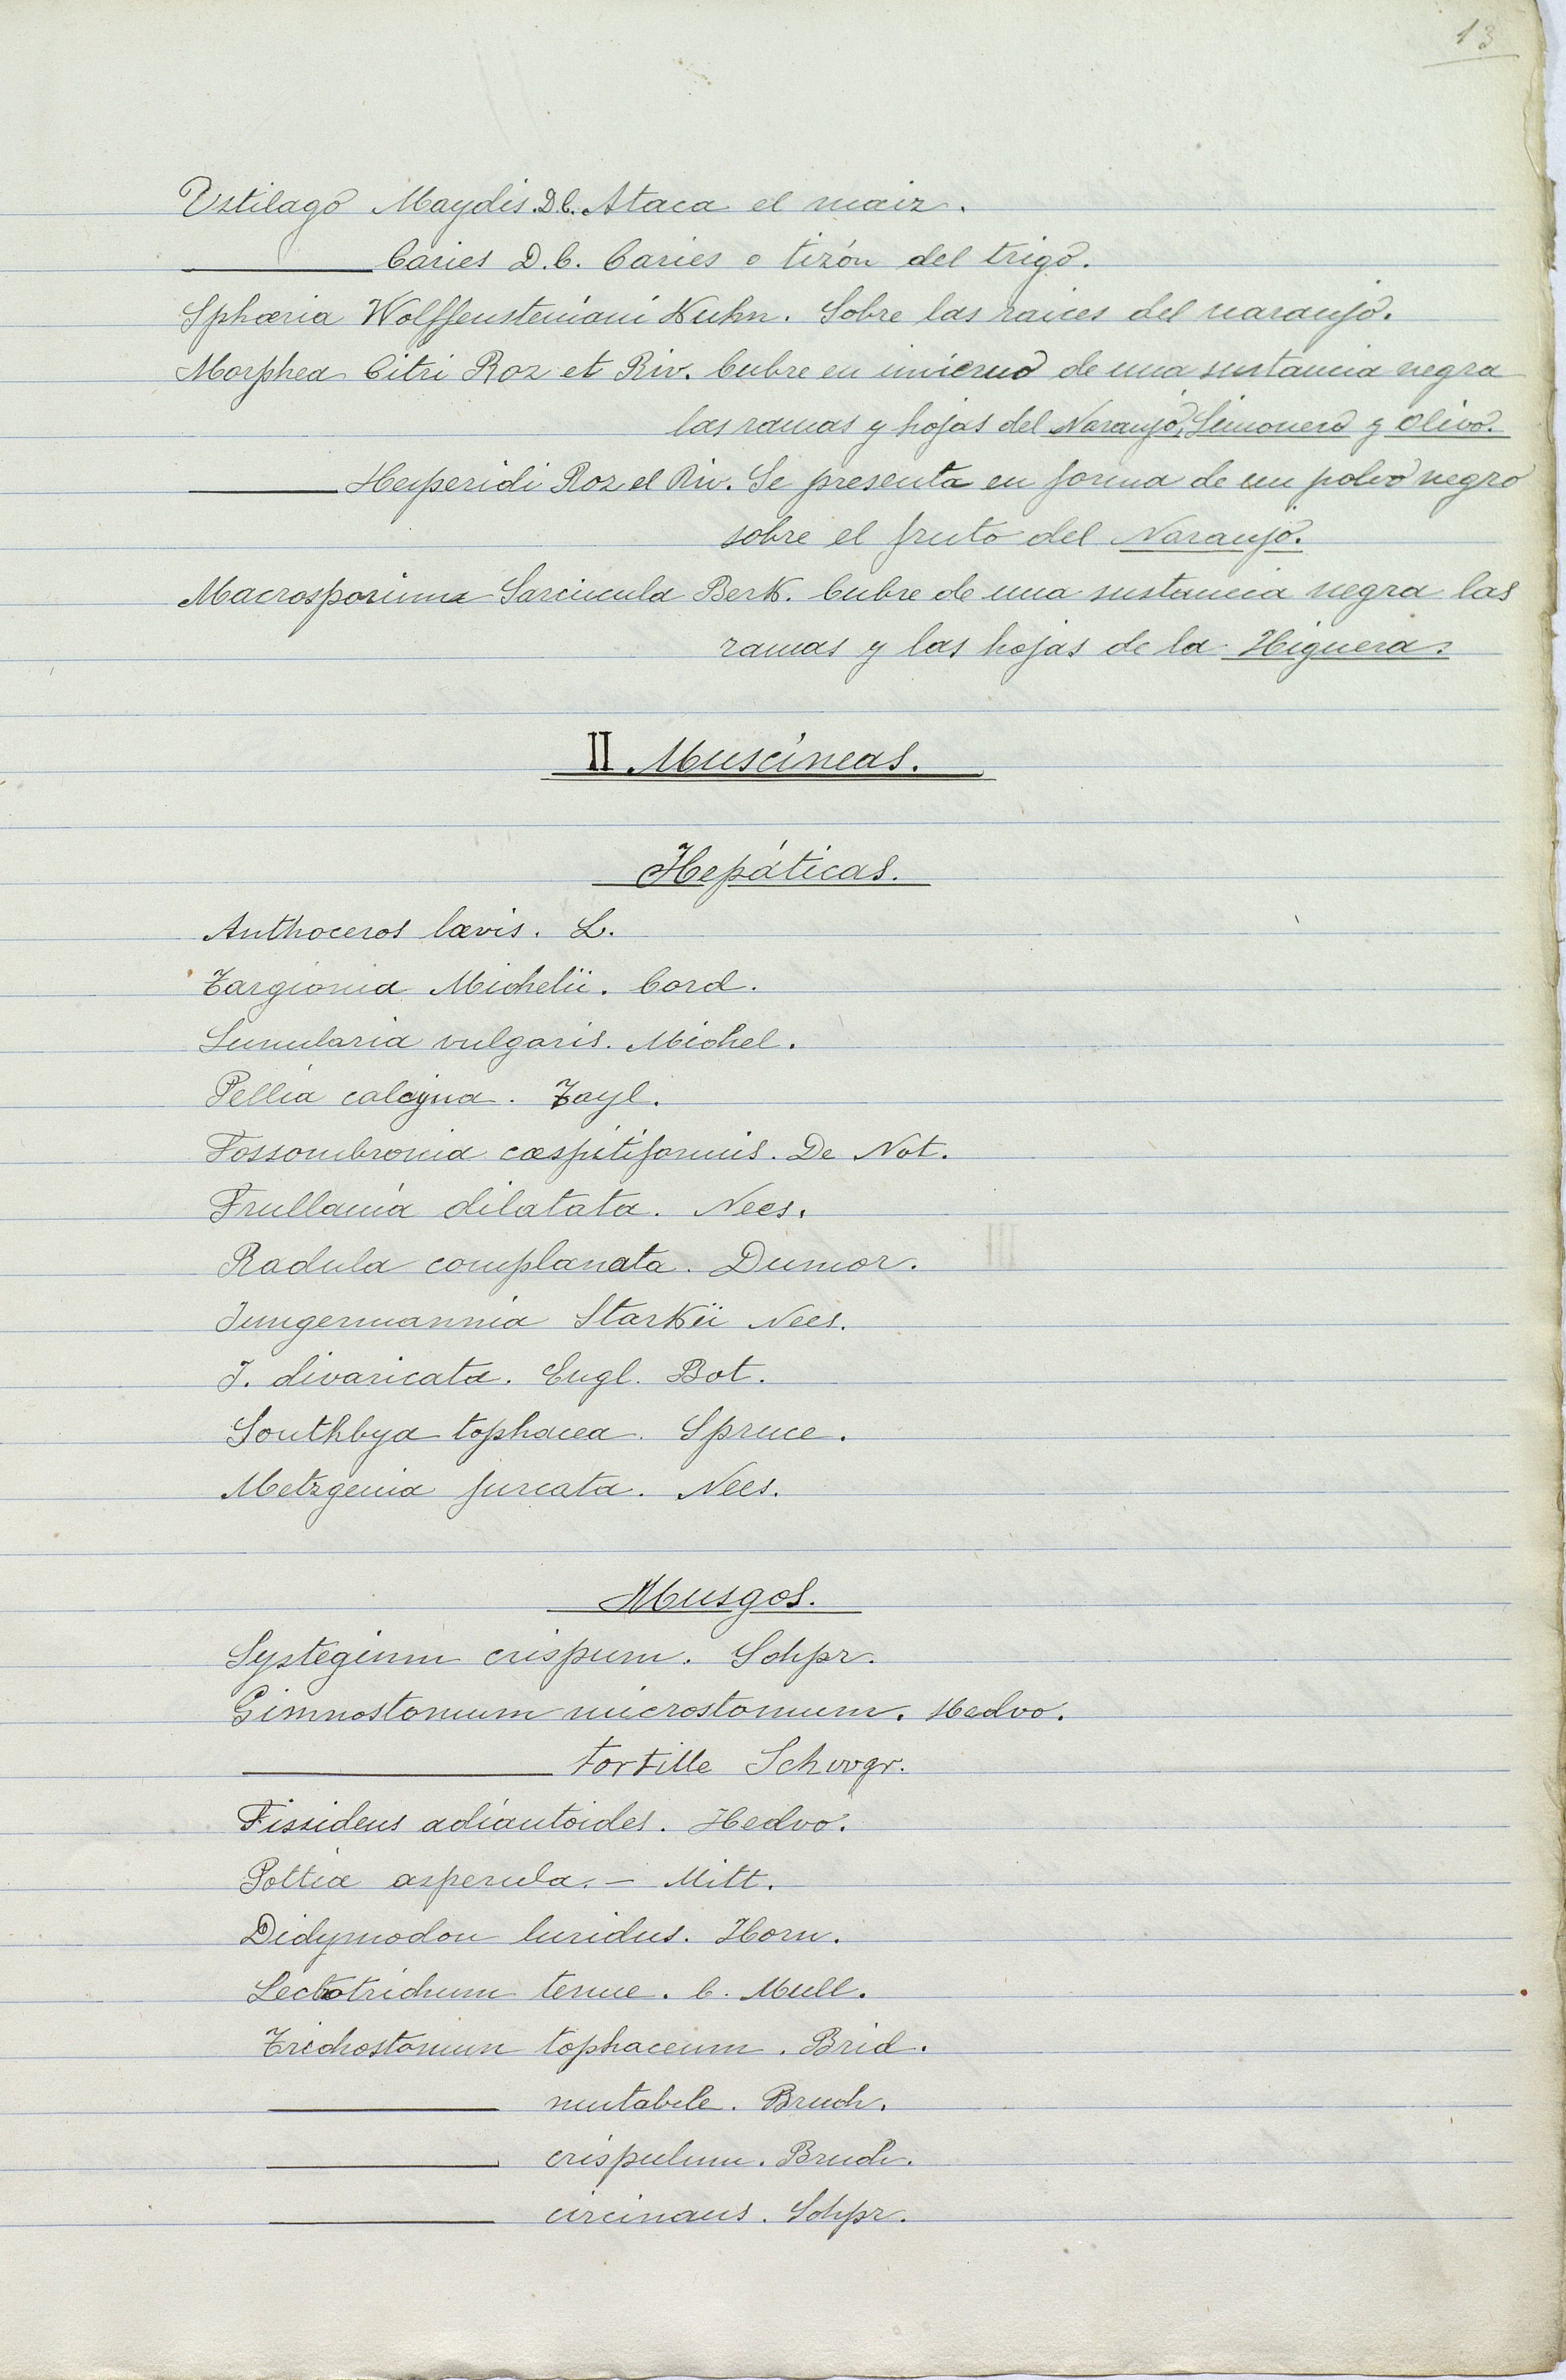 13
Ustilago Maydis. D.C. Ataca el maiz.
______ Caries D.C. Caries o tizón del trigo.
Sphæria Wolffensteiniani Kuhn. Sobre las raices del naranjo.
Morphea Citri Roz et Riv. Cubre en invierno de una sustancia negra
las ramas y hojas del Naranjo, Limonero y Olivo.
______ Hesperidi Roz et Riv. Se presenta en forma de un polvo negro
sobre el fruto del Naranjo.
Macrosporium Sarcinula Berk. Cubre de una sustancia negra las
ramas y las hojas de la Higuera.
II. Muscineas.
Hepáticas.
Anthoceros lævis. L.
Targionia Michelii. Cord.
Lunularia vulgaris. Michel.
Pellia calcyna. Tayl.
Fossombronia cæspitiformis. De Not.
Frullania dilatata. Nees.
Radula complanata. Dumor.
Jungermannia Starkii Nees.
J. divaricata. Engl. Bot.
Southbya tophacea. Spruce.
Metzgeria furcata. Nees.
Musgos.
Systegium crispum. Schpr.
Gimnostomum microstomum. Hedw.
______ tortille Schwgr.
Fissidens adiantoides. Hedw.
Pottia asperula. - Mitt.
Didymodon luridus. Horn.
Leptotrichum tenue. C. Mull.
Trichostomum tophaceum. Brid.
______ mutabile. Bruch.
______ crispulum. Bruch.
______ circinans. Schpr.